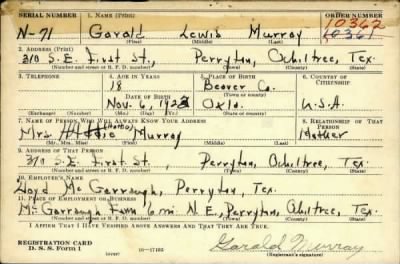 SERIAL NUMBER 1. NAME (Print) ORDER NUMBER
N-71 Garald Lewis Murray 10362
10361
(First) (Middle) (Last)
2. ADDRESS (Print)
310 S.E. First St., Perryton, Ochiltree, Tex.
(Number and street or R. F. D. number) (Town) (County) (State)
3. TELEPHONE 4. AGE IN YEARS 5. PLACE OF BIRTH 6. COUNTRY OF CITIZENSHIP
18 Beaver Co.
DATE OF BIRTH (Town or county)
Nov. 6, 1923 Okla. U.S.A.
(Exchange) (Number) (Mo.) (Day) (Yr.) (State or country)
7. NAME OF PERSON WHO WILL ALWAYS KNOW YOUR ADDRESS 8. RELATIONSHIP OF THAT PERSON
Mrs. Murray Mother
(Mr., Mrs., Miss) (First) (Middle) (Last)
9. ADDRESS OF THAT PERSON
310 S.E. First St. Perryton, Ochiltree, Tex.
(Number and street or R. F. D. number) (Town) (County) (State)
10. EMPLOYER'S NAME
Lloyd McGarraugh, Perryton, Tex.
11. PLACE OF EMPLOYMENT OR BUSINESS
McGarraugh Farm 6 mi. N.E., Perryton, Ochiltree, Tex.
(Number and street or R. F. D. number) (Town) (County) (State)
I AFFIRM THAT I HAVE VERIFIED ABOVE ANSWERS AND THAT THEY ARE TRUE.
REGISTRATION CARD
D. S. S. Form 1 16—17105 Garald Murray
(over) (Registrant's signature)